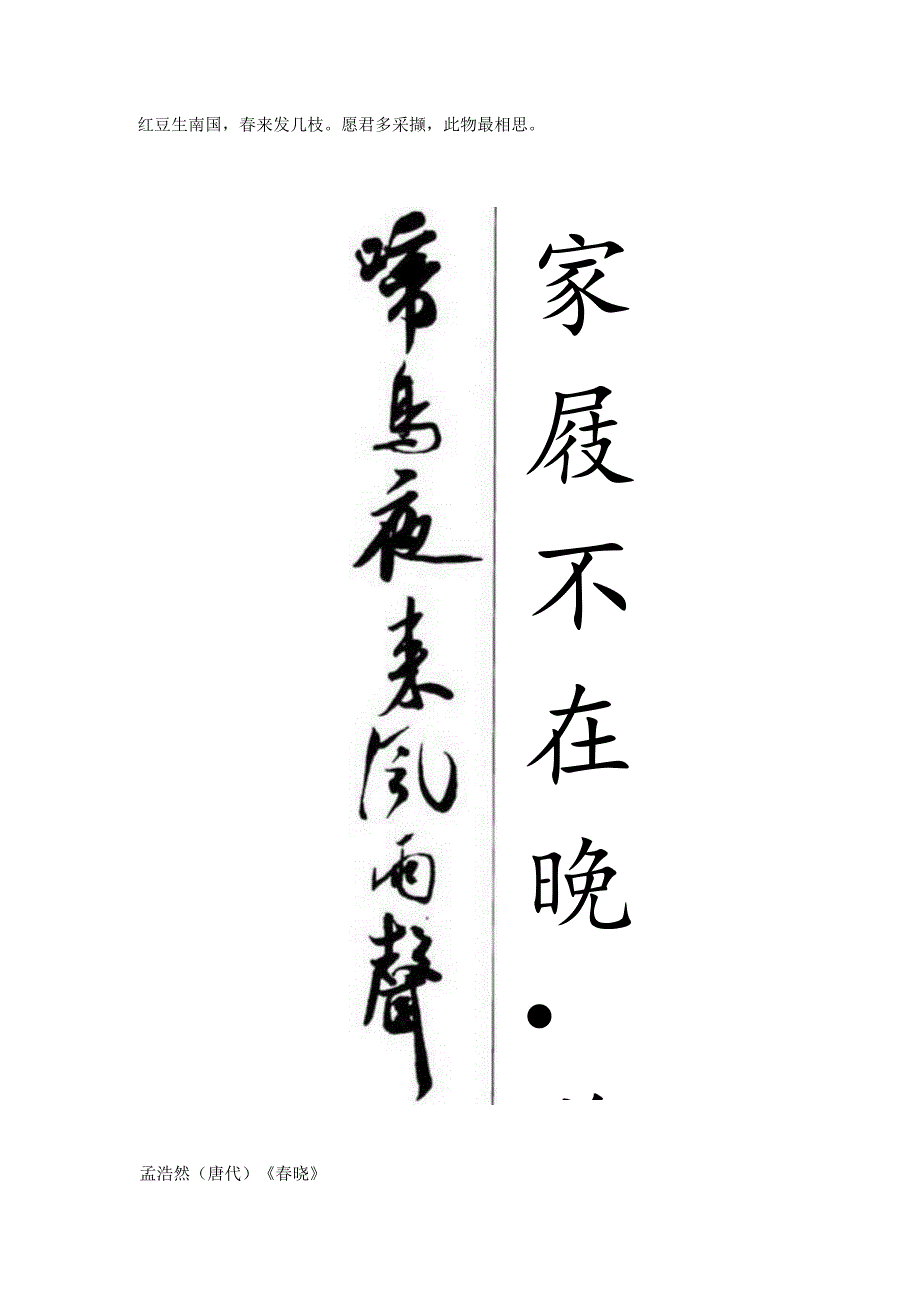 红豆生南国，春来发几枝。愿君多采撷，此物最相思。
家屐不在晚
•
啼鸟夜来风雨聲
孟浩然（唐代）《春晓》